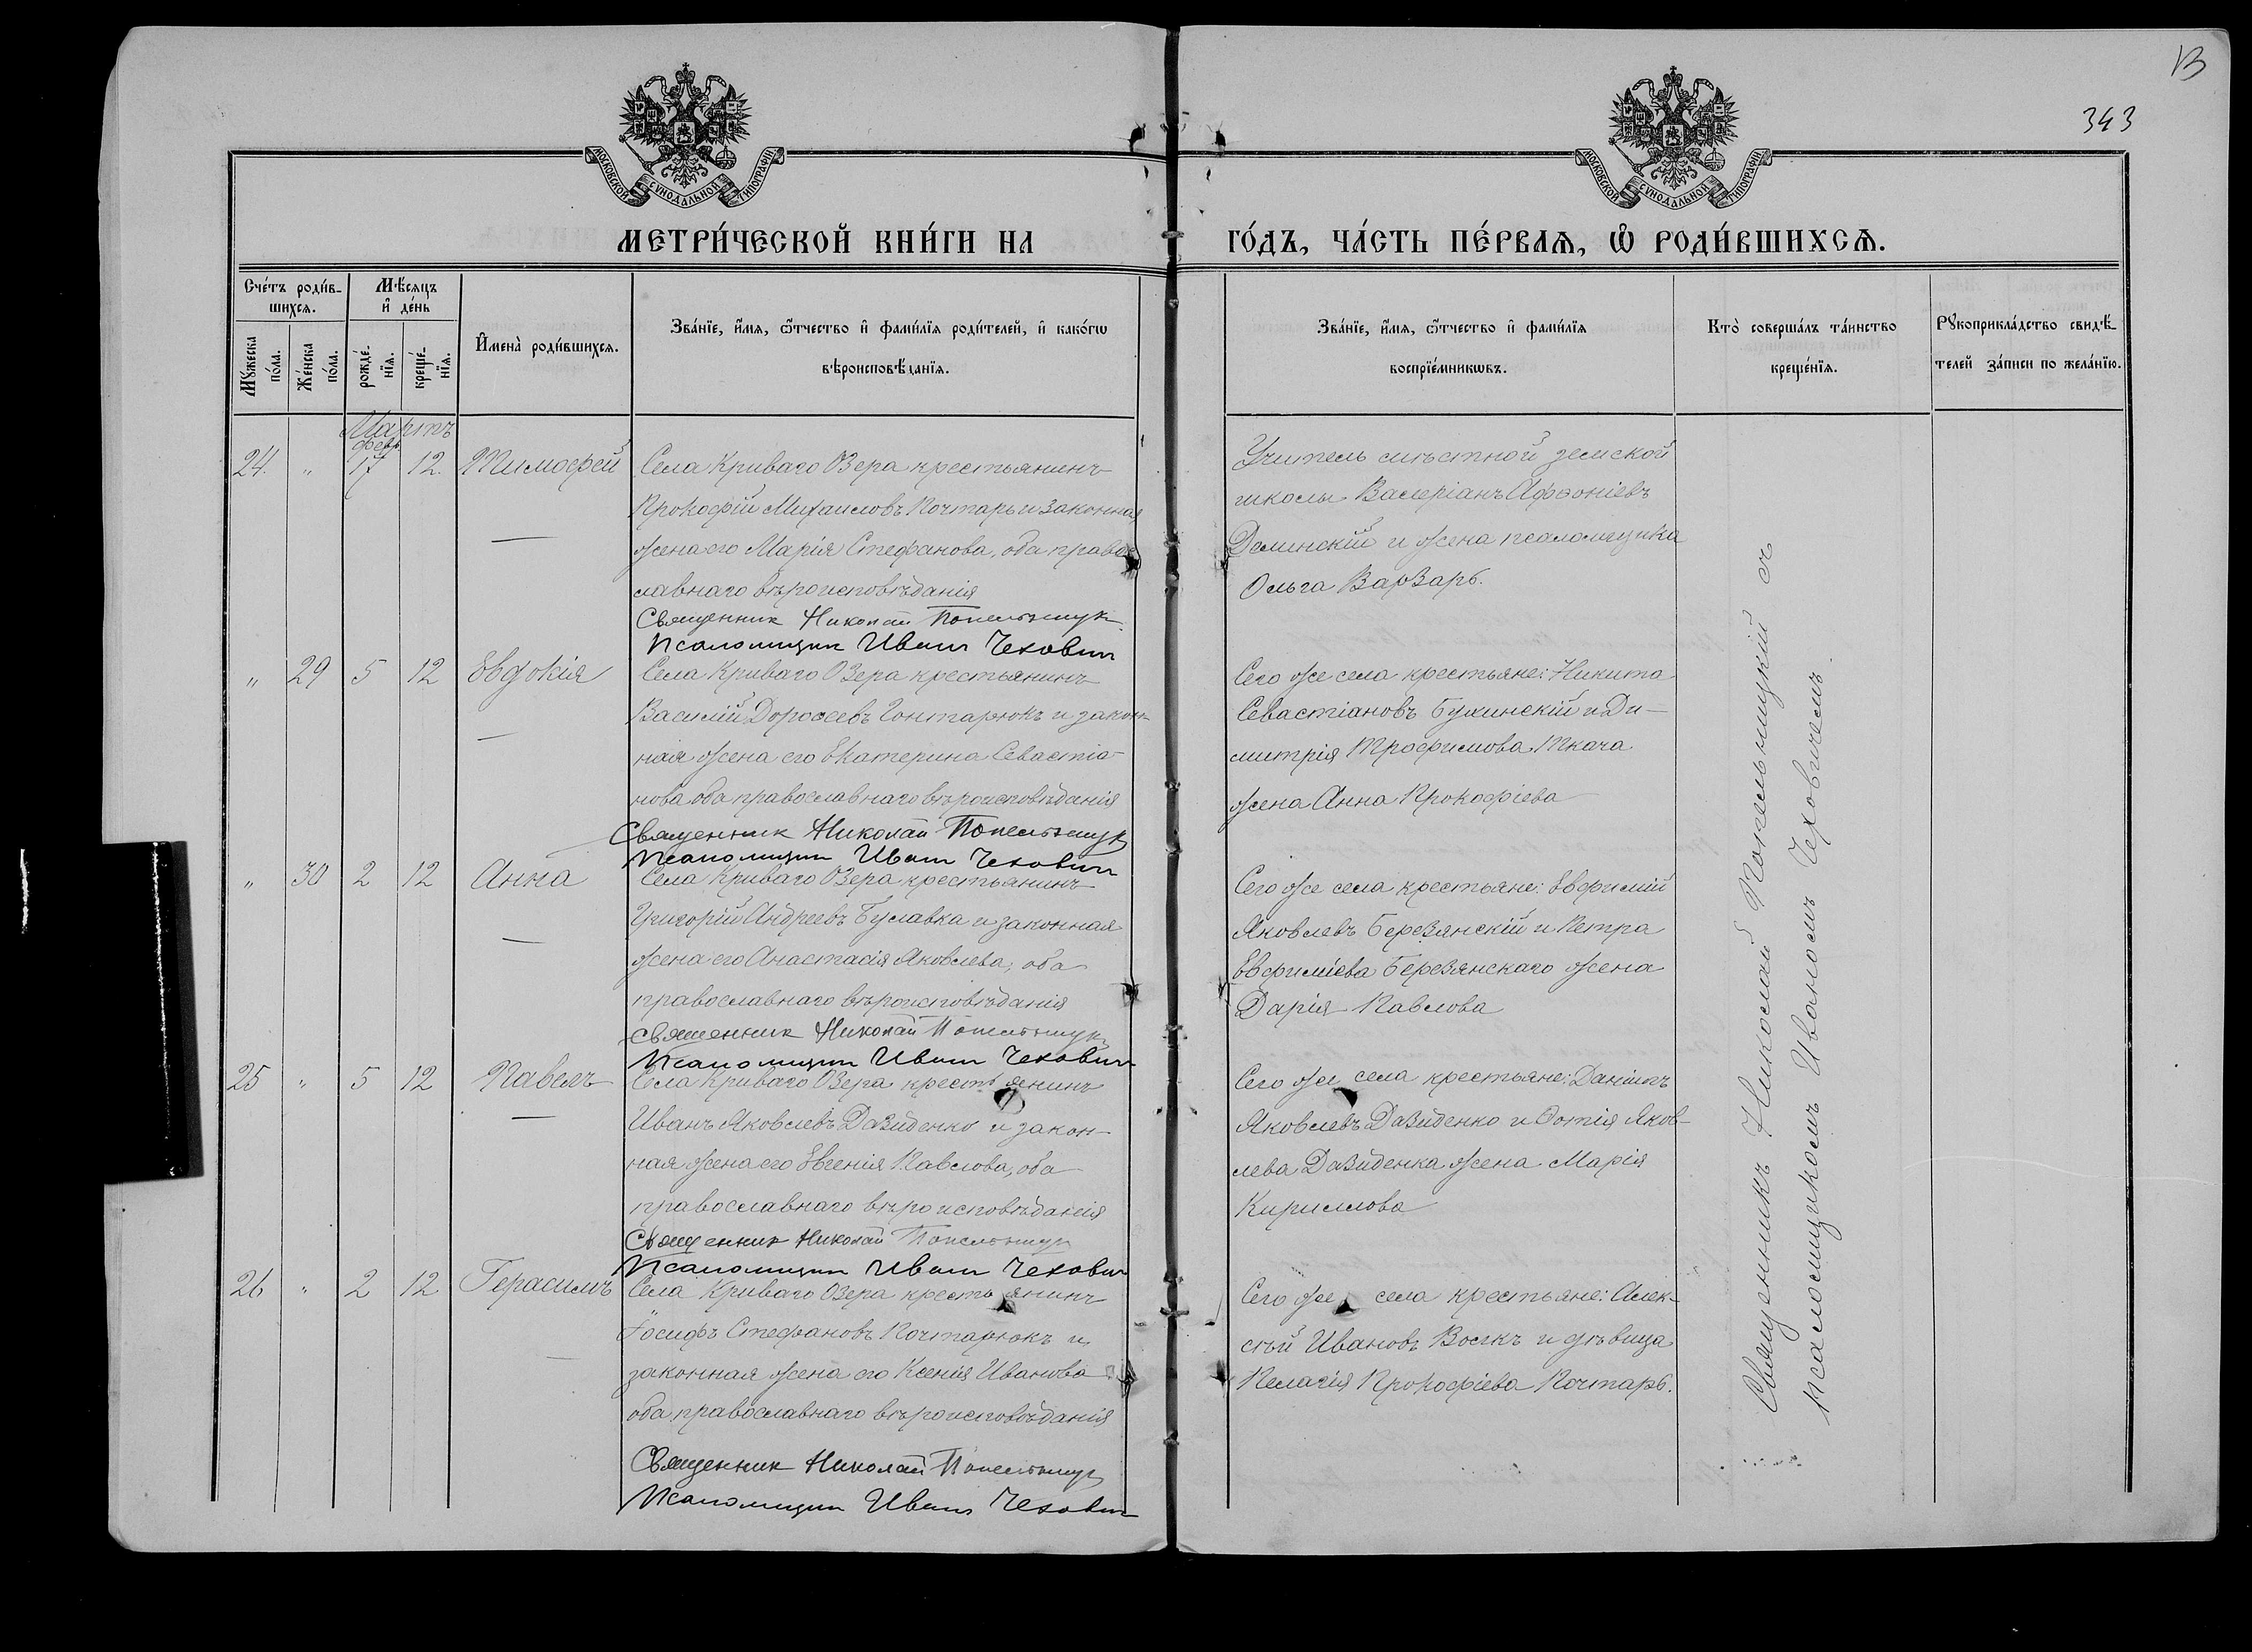 13
343
МОСКОВСКОЙ СѴНОДАЛЬНОЙ ТИПОГРАФІИ
МОСКОВСКОЙ СѴНОДАЛЬНОЙ ТИПОГРАФІИ
МЕТРИ́ЧЕСКОЙ КНИ́ГИ НА
ГО́ДЪ, ЧА́СТЬ ПЕ́РВАѦ, Ѡ҆ РОДИ́ВШИХСѦ.
Сче́тъ роди́в-
шихсѧ.
Мѣ́сѧцъ
и҆ де́нь
Мꙋ́жеска
по́ла.
Же́нска
по́ла.
рожде́-
нїѧ.
креще́-
нїѧ.
И҆мена̀ роди́вшихсѧ.
Зва́нїе, и҆́мѧ, ѻ҆́тчество и҆ фами́лїѧ роди́телей, и҆ како́гѡ
вѣроисповѣ́данїѧ.
Зва́нїе, и҆́мѧ, ѻ҆́тчество и҆ фами́лїѧ
воспрїе́мникѡвъ.
Кто̀ соверша́лъ та́инство
креще́нїѧ.
Рꙋкоприкла́дство свидѣ́-
телей за́писи по жела́нїю.
Мартъ
февр.
24. " 17 12. Тимофей
Села Криваго Озера крестьянинъ
Прокофій Михаиловъ Кочтарь и законная
жена его Марія Стефанова, оба право-
славнаго вѣроисповѣданія
Священник Николай Попельницк
Псаломщик Иван Чехович
Учитель мѣстной земской
школы Валеріанъ Афѳоніевъ
Деминскій и жена псаломщика
Ольга Варзарь.
" 29 5 12 Евдокія
Села Криваго Озера крестьянинъ
Василій Дороѳеевъ Гонтарюкъ и закон-
ная жена его Екатерина Севастіа-
нова оба православнаго вѣроисповѣданія
Священник Николай Попельницк
Псаломщик Иван Чехович
Сего же села крестьяне: Никита
Севастіановъ Бужинскій и Ди-
митрія Трофимова Ткача
жена Анна Прокофіева
" 30 2 12 Анна
Села Криваго Озера крестьянинъ
Григорій Андреевъ Булавка и законная
жена его Анастасія Яковлева, оба
православнаго вѣроисповѣданія
Священник Николай Попельницк
Псаломщик Иван Чехович
Сего же села крестьяне: Евфимій
Яковлевъ Березянскій и Петра
Евфиміева Березянскаго жена
Дарія Павлова
25 " 5 12 Павелъ
Села Криваго Озера крестьянинъ
Иванъ Яковлевъ Давиденко и закон-
ная жена его Евгенія Павлова, оба
православнаго вѣроисповѣданія
Священник Николай Попельницк
Псаломщик Иван Чехович
Сего же села крестьяне: Даніилъ
Яковлевъ Давиденко и Фотія Яков-
лева Давиденка жена Марія
Кириллова
26 " 2 12 Герасимъ
Села Криваго Озера крестьянинъ
Іосифъ Стефановъ Кочтарюкъ и
законная жена его Ксенія Иванова
оба православнаго вѣроисповѣданія
Священник Николай Попельницк
Псаломщик Иван Чехович
Сего же села крестьяне: Алек-
сѣй Ивановъ Волкъ и дѣвица
Пелагія Прокофіева Кочтарь.
Священникъ Николай Попельницкій съ
псаломщикомъ Иваномъ Чеховичемъ.